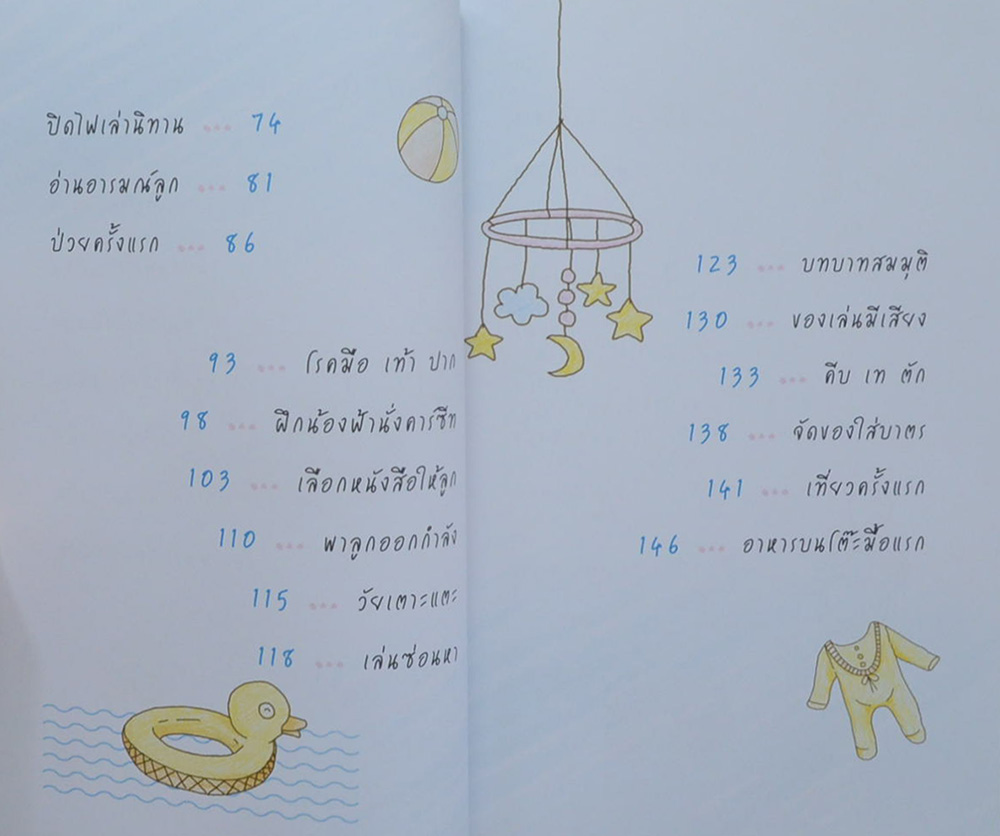 ปิดไฟเล่านิทาน ... 74
อ่านอารมณ์ลูก ... 81
ป่วยครั้งแรก ... 86
93 ... โรคมือ เท้า ปาก
98 ... ฝึกน้องฟ้านั่งคาร์ซีท
103 ... เลือกหนังสือให้ลูก
110 ... พาลูกออกกำลัง
115 ... วัยเตาะแตะ
118 ... เล่นซ่อนหา
123 ... บทบาทสมมุติ
130 ... ของเล่นมีเสียง
133 ... คีบ เท ตัก
138 ... จัดของใส่บาตร
141 ... เที่ยวครั้งแรก
146 ... อาหารบนโต๊ะมื้อแรก